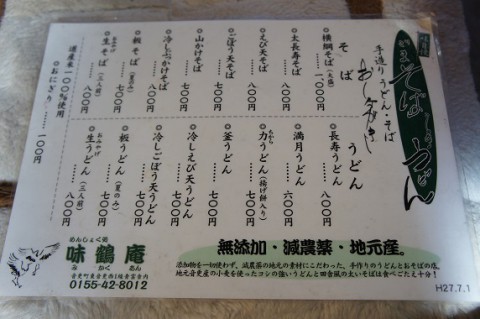 そば
うどん
手造りうどん・そば
おしながき
そば
●横綱そば（大盛）……一、〇〇〇円
●太長寿そば……八〇〇円
●えび天そば……八〇〇円
●ごぼう天そば……七〇〇円
●山かけそば……八〇〇円
●冷しぶっかけそば……七〇〇円
●板そば（夏のみ）……七〇〇円
おみやげ
●生そば（三人前）……八〇〇円
道産米100%使用
◎おにぎり……一〇〇円
うどん
●長寿うどん……八〇〇円
●満月うどん……六〇〇円
ちから
●力うどん（揚げ餅入り）……七〇〇円
●釜うどん……七〇〇円
●冷しえび天うどん……八〇〇円
●冷しごぼう天うどん……七〇〇円
●板うどん（夏のみ）……七〇〇円
おみやげ
●生うどん（三人前）……八〇〇円
めんしょく処
味鶴庵
みかくあん
0155-42-8012
無添加・減農薬・地元産。
添加物を一切使わず、減農薬の地元の素材にこだわった、手作りのうどんとおそばの店。
地元音更産の小麦を使ったコシの強いうどんと田舎風の太いそばは食べごたえ十分！
H27.7.1